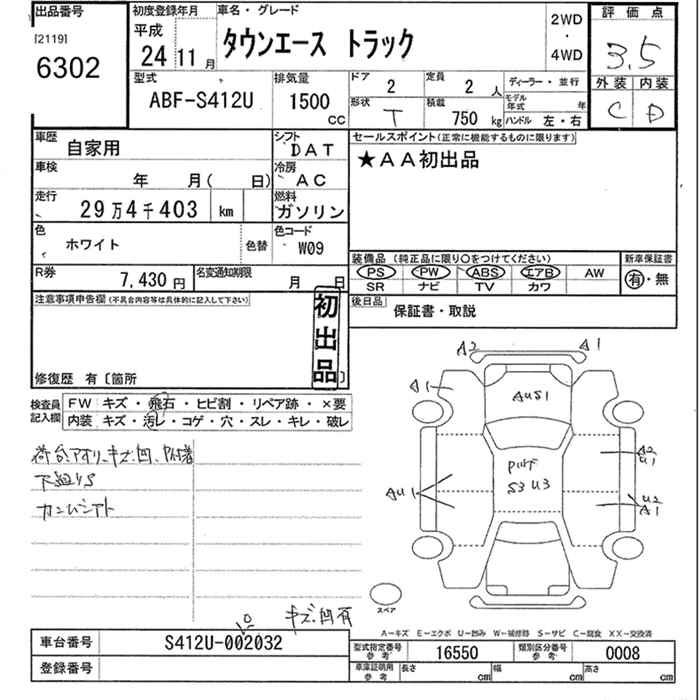 出品番号 初度登録年月 車名・グレード 2WD ・ 4WD 評価点
[2119] 平成 タウンエース トラック 3.5
6302 24 11 月
型式 排気量 ドア 2 定員 2 人 ディーラー・並行 外装 内装
ABF-S412U 1500 CC 形状 T 積載 750 kg モデル年式 年 C D
ハンドル 左・右
車歴 自家用 シフト DAT セールスポイント(正常に機能するものに限ります)
車検 年 月( 日) 冷房 AC ★AA初出品
走行 29万4千403 km 燃料 ガソリン
色 ホワイト 色替 色コード W09
装備品 (純正品に限り○をつけてください) 新車保証書
R券 7,430円 名変通知期限 月 日 PS PW ABS エアB AW 有・無
SR ナビ TV カワ
注意事項申告欄(不具合内容等は具体的に記入して下さい) 初出品 後日品 保証書・取説
修復歴 有〔箇所 〕
検査員記入欄 FW キズ・飛石・ヒビ割・リペア跡・×要
内装 キズ・汚レ・コゲ・穴・スレ・キレ・破レ
A2 A1
A1
AUS1
荷台アオリ、キズ凹
下廻りS
A2
U1
S3 U3
AU1
U2
A1
スペア
キズ凹有
A―キズ E―エクボ U―凹み W―補修跡 S―サビ C―腐食 XX―交換済
車台番号 S412U-002032
型式指定番号 参考 16550 類別区分番号 参考 0008
登録番号
車庫証明用 参考 長さ cm 幅 cm 高さ cm